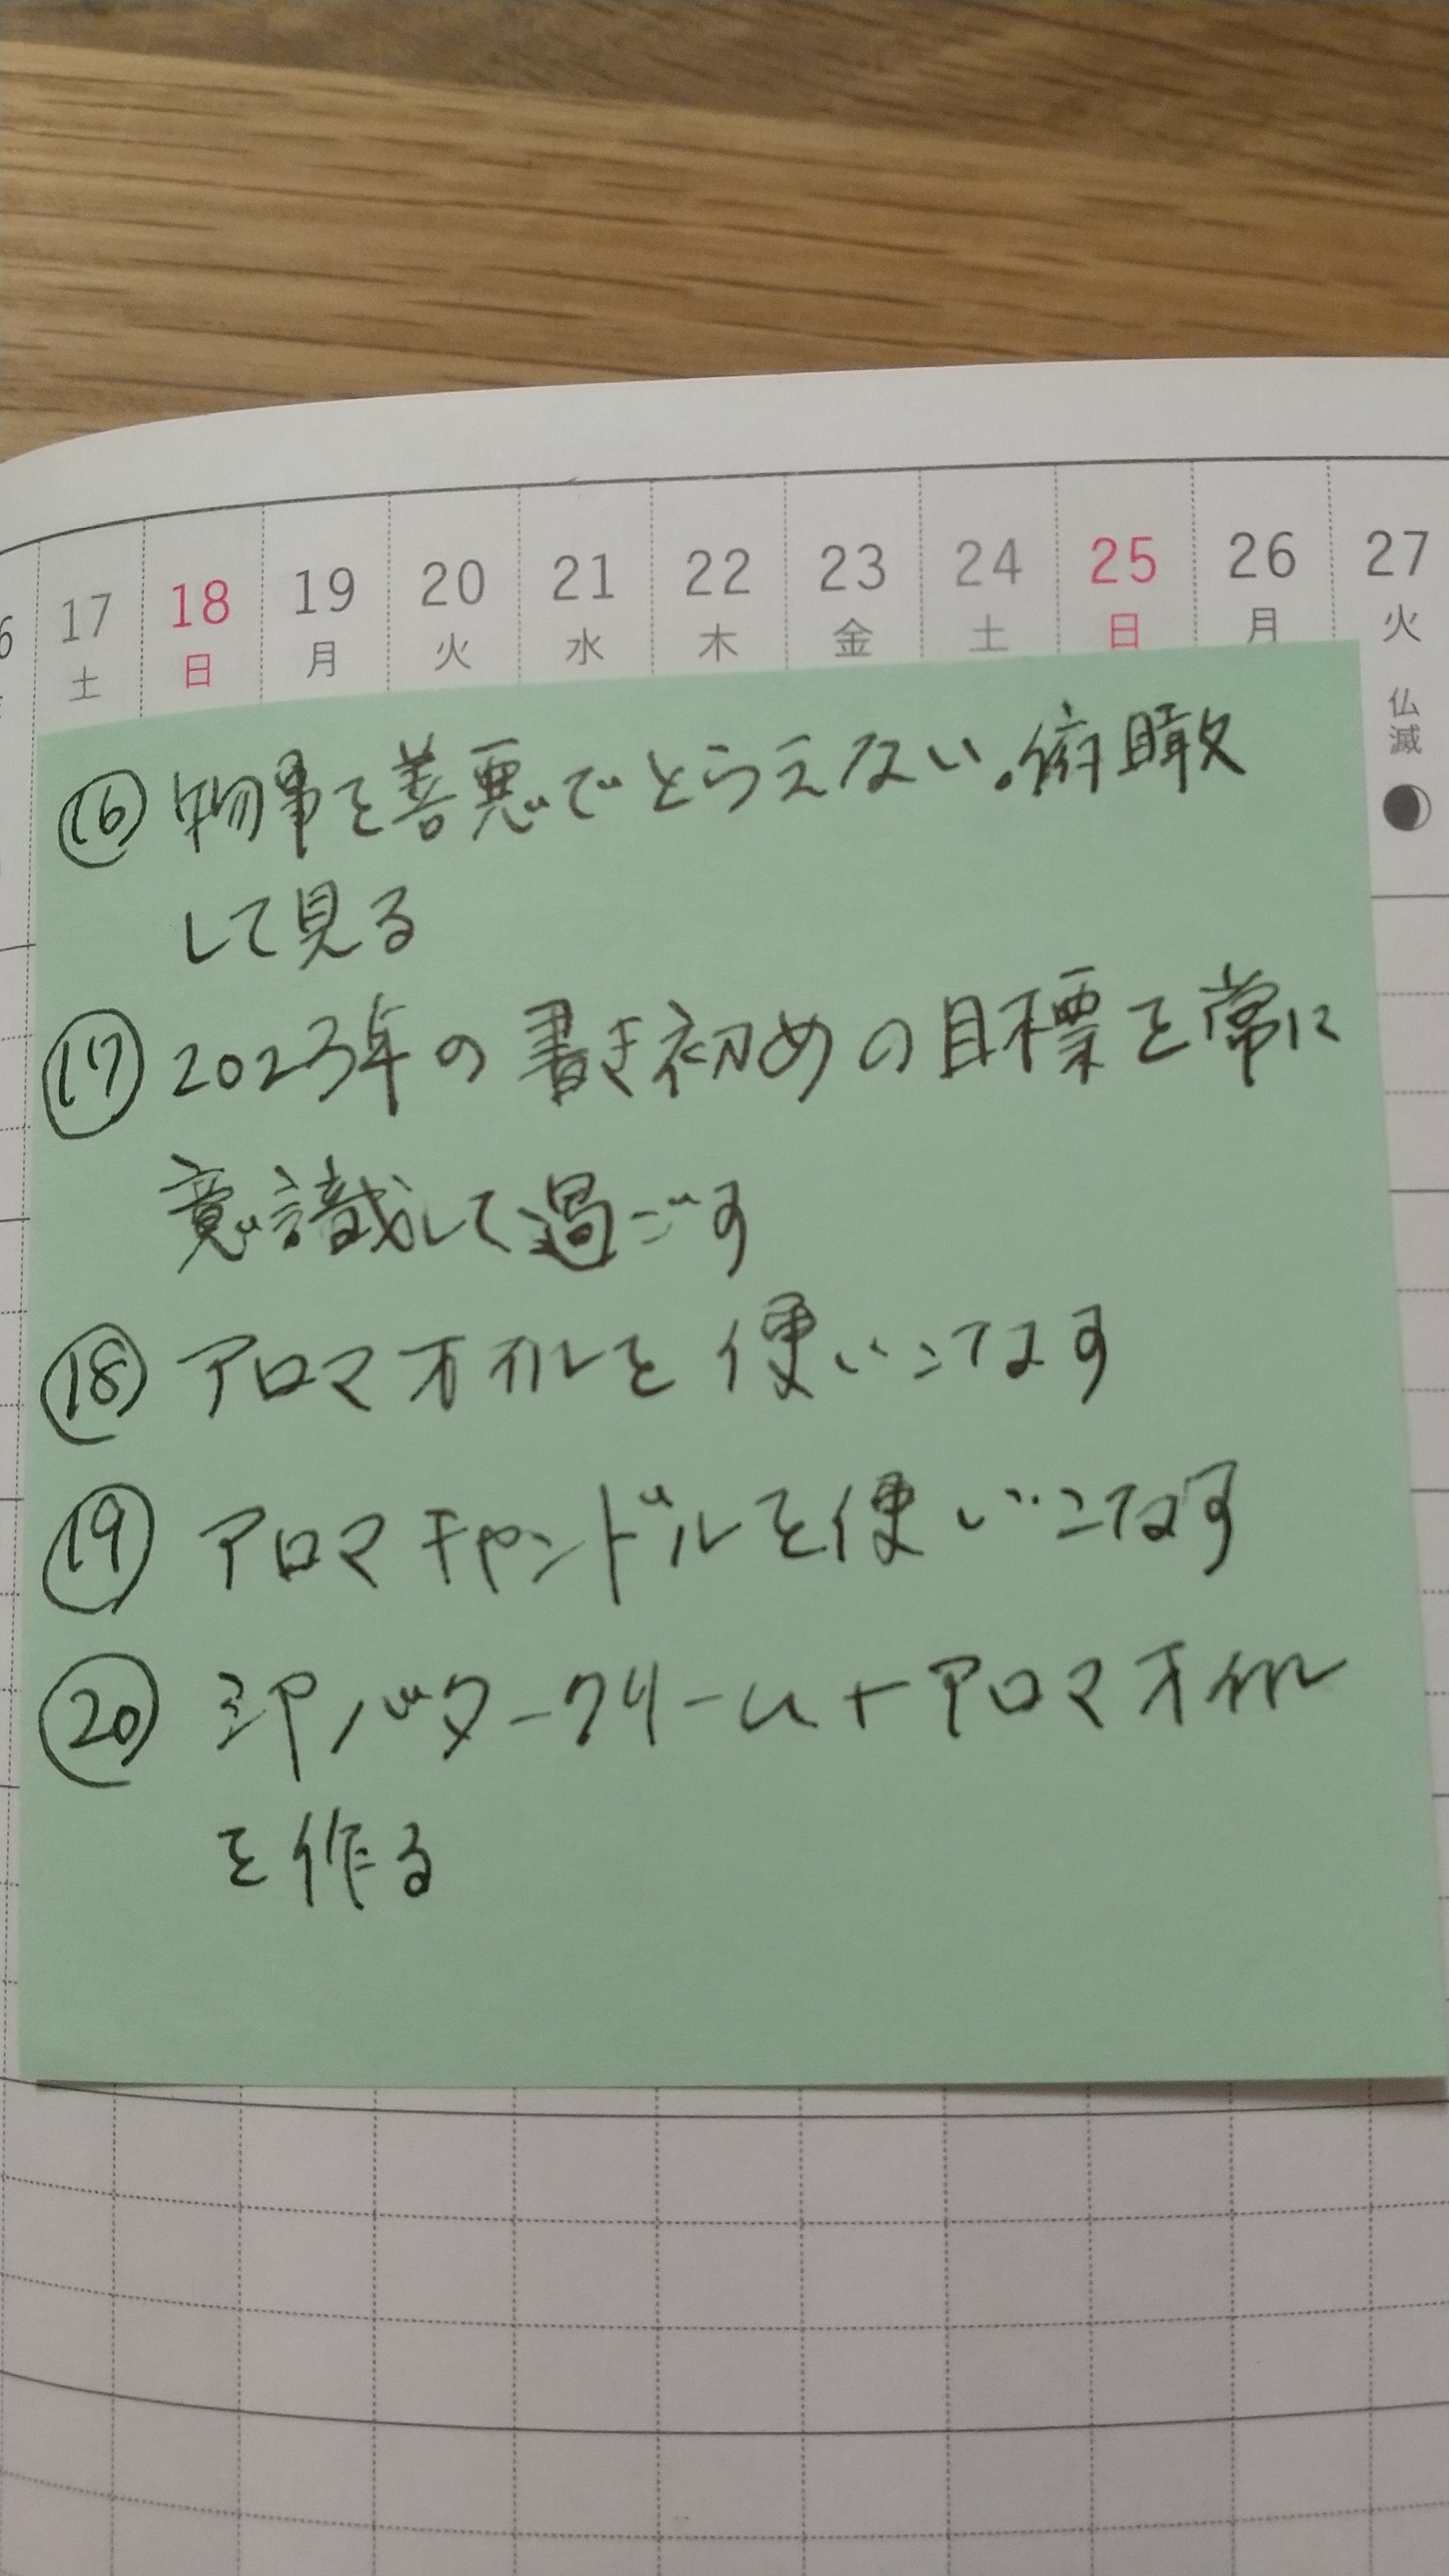 6 17 18 19 20 21 22 23 24 25 26 27
土 日 月 火 水 木 金 土 日 月 火
仏滅
⑯ 物事を善悪でとらえない。俯瞰
して見る
⑰ 2023年の書き初めの目標を常に
意識して過ごす
⑱ アロマオイルを使いこなす
⑲ アロマキャンドルを使いこなす
⑳ シアバタークリーム+アロマオイル
を作る